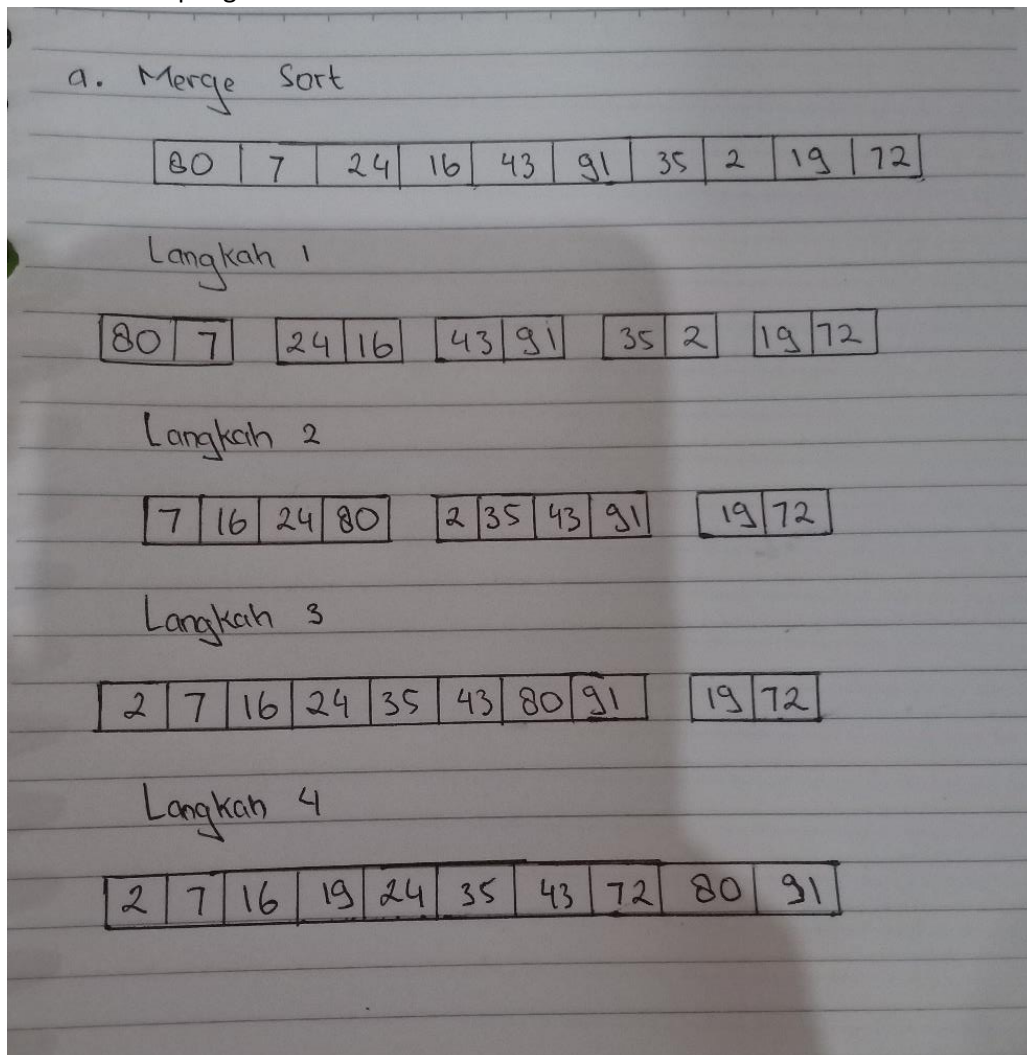 a. Merge Sort
80 7 24 16 43 91 35 2 19 72
Langkah 1
80 7 24 16 43 91 35 2 19 72
Langkah 2
7 16 24 80 2 35 43 91 19 72
Langkah 3
2 7 16 24 35 43 80 91 19 72
Langkah 4
2 7 16 19 24 35 43 72 80 91